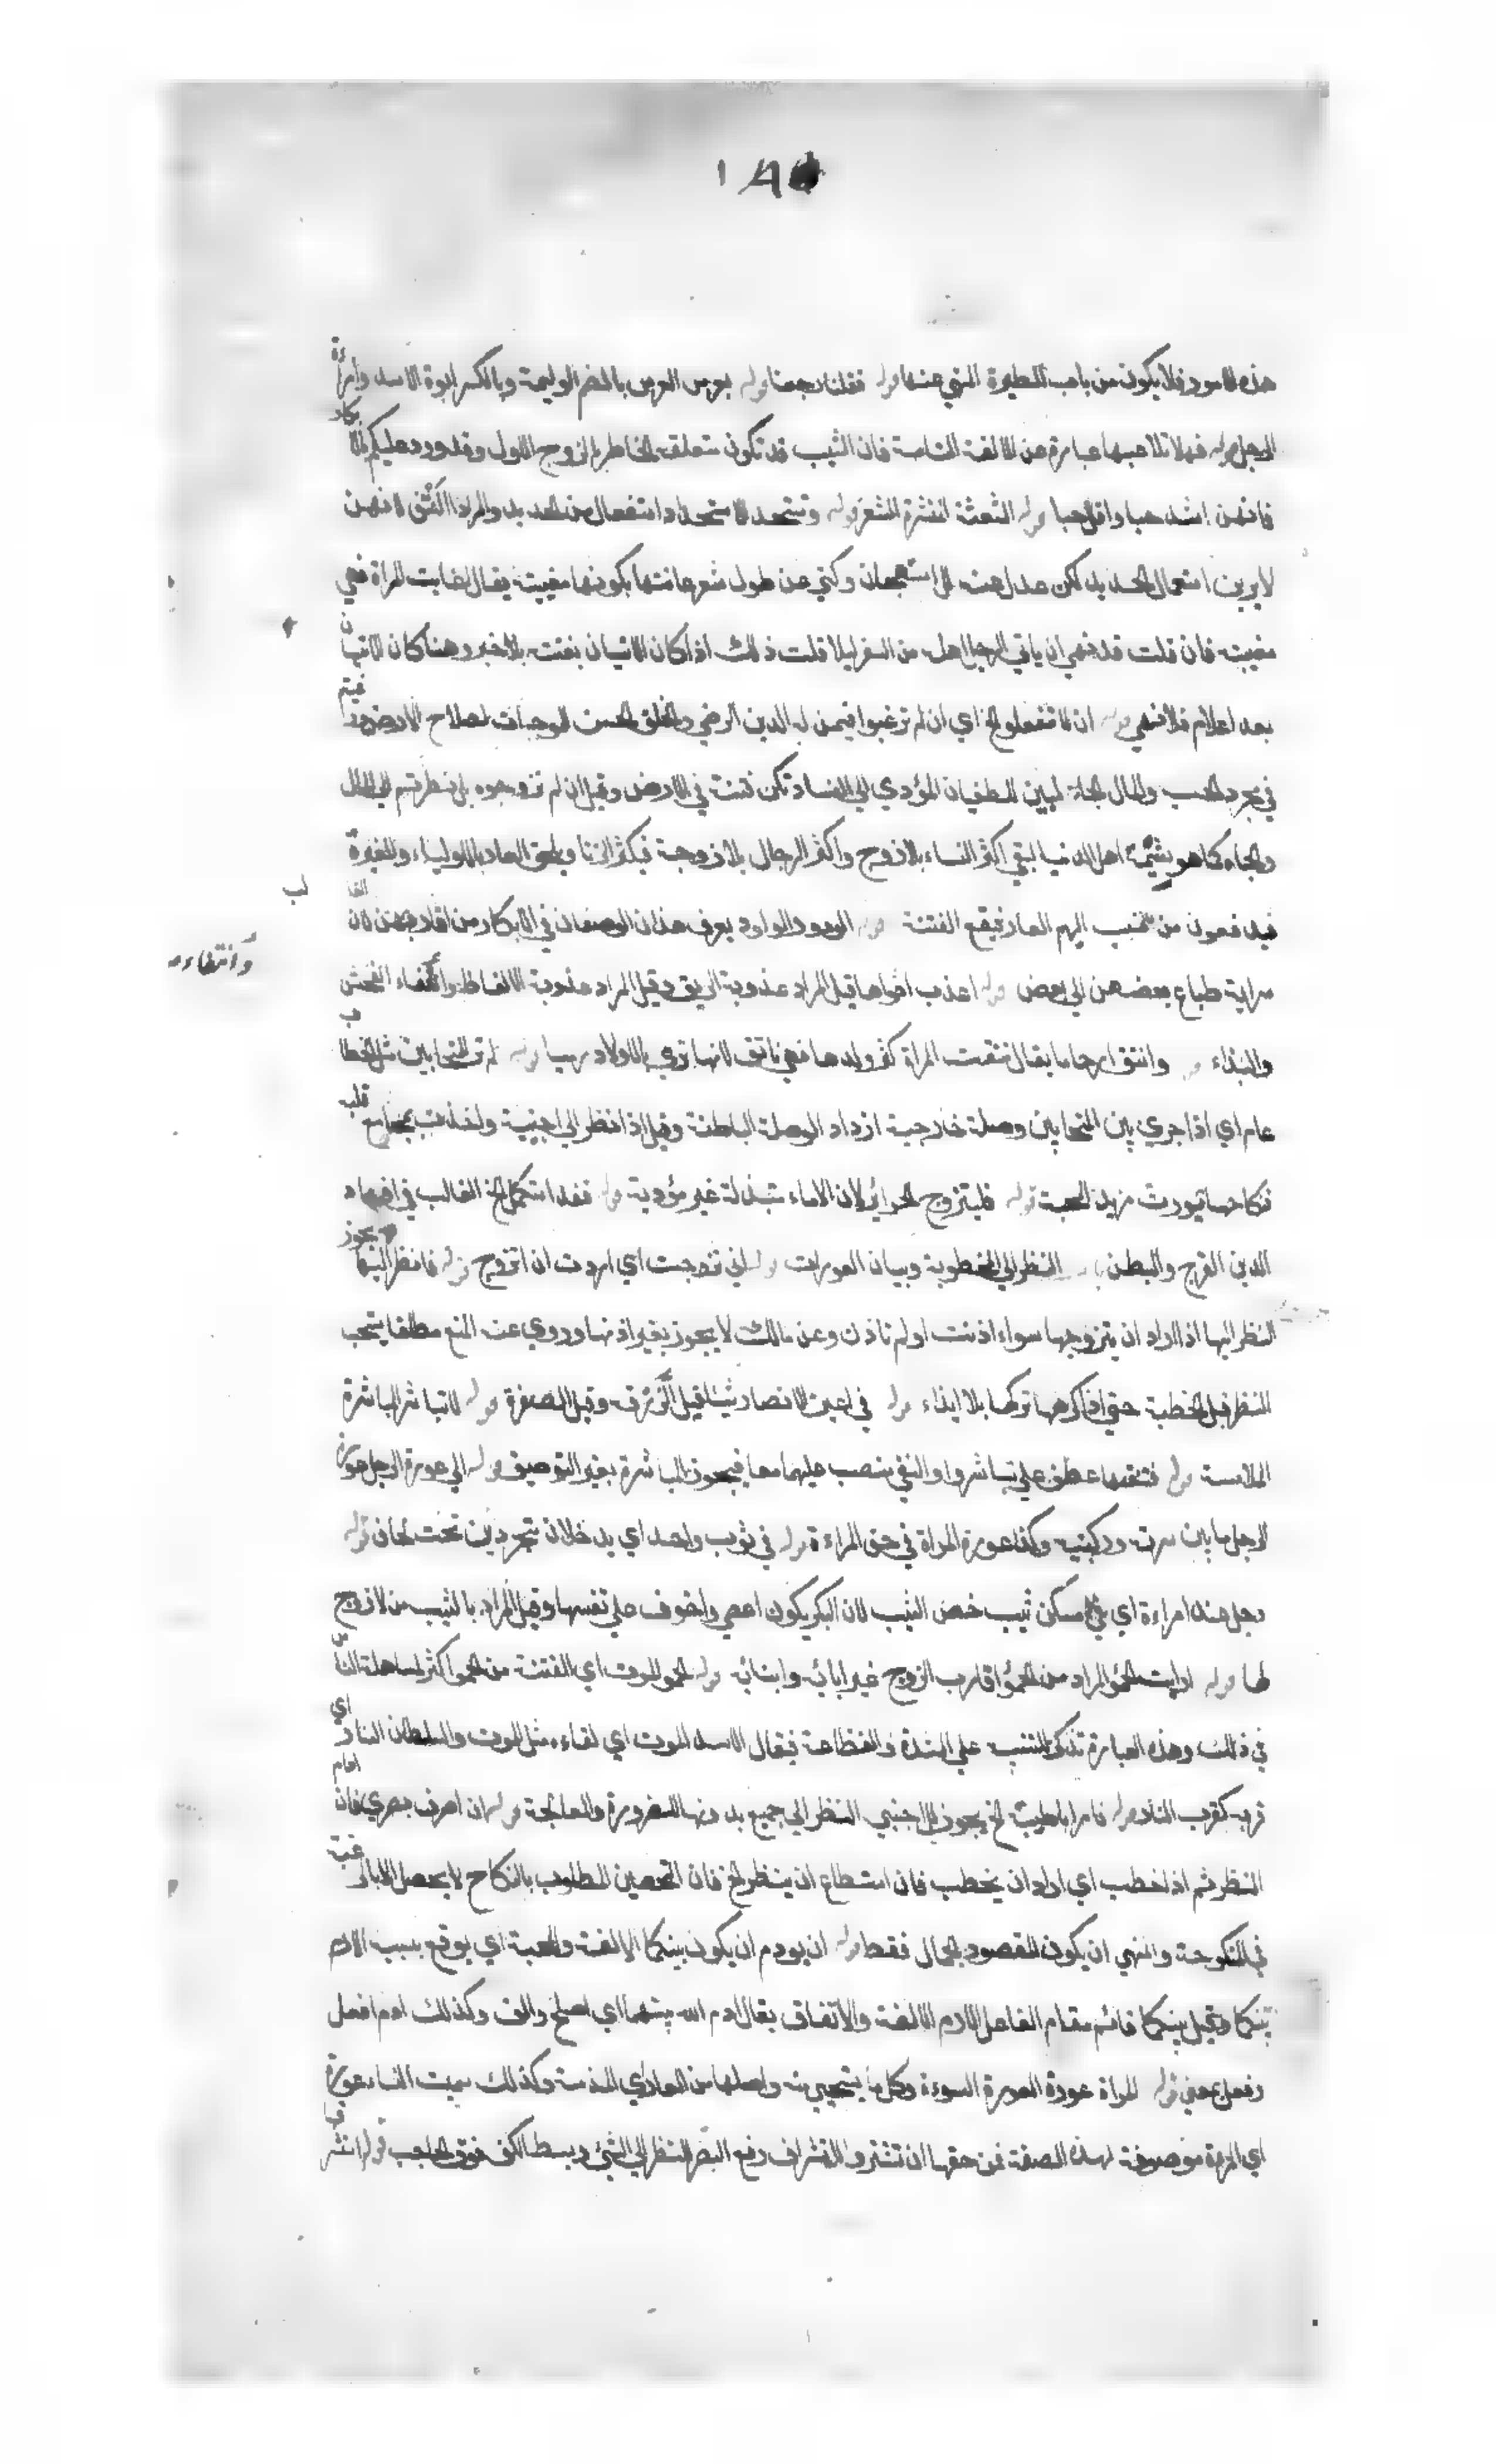 هذه الامور فلا يكون من باب الطيرة المنهي عنها قوله فقلنا رجعنا قوله بعرس العرس بالضم الوليمة وبالكسر لبوة الاسد وامرأة
الرجل قوله فهلا تلاعبها عبارة عن الالفة التامة فان الثيب قد تكون متعلقة الخاطر بالزوج الاول وقد ورد عليكم بالابكار
فانهن اشد حبا واقل خبا قوله الشعثة المنتشرة الشعر قوله وتستحد الاستحداد استفعال من الحديد والمراد لانهن
لا يرين استعمال الحديد لكن عدل عنه للاستهجان وكني عن طول شعر عانتها بكونها مغيبة يقال اغابت المراة فهي
مغيبة فان قلت قد نهي ان ياتي الرجل اهله من السفر ليلا قلت ذلك اذا كان الاتيان بغتة بلا خبر وهنا كان الاتيان
بعد اعلام فلا نهي قوله ان لا تفعلوه الخ اي ان لم ترغبوا فيمن له الدين الرضي والخلق الحسن الموجبات لصلاح الارض ورغبتم
في مجرد الحسب والمال الطغيان المؤدي الي الفساد تكن فتنة في الارض وقيل ان لم تزوجوه بل نظرتم الي المال
والجاه كما هو شيمة اهل الدنيا لبقي اكثر النساء بلا زوج واكثر الرجال بلا زوجة فيكثر الزنا ويلحق العار بالاولياء والغيرة
فيقع الفتنة قوله الودود الولود يعرف هذان الوصفان في الابكار من اقاربهن لان الغالب
سراية طباع بعضهن الي بعض قوله اعذب افواها قيل المراد عذوبة الريق وقيل المراد عذوبة الالفاظ وانتفاء الفحش
وانتفاء
والبذاء قوله وانتق ارحاما يقال نتقت المراة كثر ولدها فهي ناتق لانها ترمي بالاولاد رميا قوله لم تر للمتحابين مثل الخطاب
عام اي اذا جري بين المتحابين وصلة خارجية ازداد الوصلة الباطنة وقيل اذا نظر الي اجنبية واخذت بمجامع قلبه
فنكاحها يورث مزيد المحبة قوله فليتزوج الحرائر لان الاماء مبتذلة غير مؤدبة قوله فقد استكمل الخ الغالب في افساد
الدين الفرج والبطن باب النظر الي المخطوبة وبيان العورات قوله اني تزوجت اي اردت ان اتزوج قوله فانظر اليها يجوز
النظر اليها اذا اراد ان يتزوجها سواء اذنت او لم تاذن وعن مالك لا يجوز بغير اذنها وروي عنه المنع مطلقا يستحب
النظر قبل الخطبة حتي اذا كرهها تركها بلا ايذاء قوله في اعين الانصار شيئا قيل الزرقة وقيل الصفرة قوله لا تباشر المباشرة
الملامسة قوله فتنعتها عطف علي تباشر والنفي منصب عليهما معا فيجوز المباشرة بغير التوصيف قوله الي عورة الرجل عورة
الرجل ما بين سرته وركبتيه وكذا عورة المراة في حق المراءة قوله في ثوب واحد اي يدخلان متجردين تحت لحاف قوله
رجل عند امراءة اي في مسكن ثيب خص الثيب لان البكر يكون اعصي واخوف علي نفسها وقيل المراد بالثيب من لا زوج
لها قوله ارايت الحمو المراد من الحمو اقارب الزوج غير ابائه وابنائه قوله الحمو الموت اي الفتنة من الحمو اكثر لمساهلة الناس
في ذلك وهذه العبارة تذكر للتنبيه علي الشدة والفظاعة فيقال الاسد الموت اي لقاءه مثل الموت والسلطان النار اي
قربه كقرب النار قوله فامر ابا طيبة الخ يجوز للاجنبي النظر الي جميع بدنها للضرورة والمعالجة قوله ان اصرف بصري فان
النظر قوله اذا خطب اي اراد ان يخطب فان استطاع ان ينظر الخ فان التحصين المطلوب بالنكاح لا يحصل الا بالرغبة
في المنكوحة والنهي ان يكون المقصود الجمال فقط قوله ان يودم ان يكون بينكما الالفة والمحبة اي يوقع بسبب الادم
بينكما وقيل بينكما قائم مقام الفاعل الادم الالفة والاتفاق يقال ادم الله بينهما اي اصلح والف وكذلك ادم افعل
وفعل بمعني قوله المراة عورة العورة السوءة وكل ما يستحيي منه واصلها من العار اي المذمة وكذلك سميت النساء عورة
اي المراة موصوفة بهذه الصفة فمن حقها ان تستتر والاستشراف رفع البصر للنظر الي الشيء وبسط الكف فوق الحاجب قوله